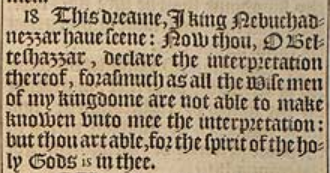 18 This dreame, I king Nebuchad-
nezzar haue seene: Now thou, O Bel-
teshazzar, declare the interpretation
thereof, forasmuch as all the wise men
of my kingdome are not able to make
knowen vnto mee the interpretation:
but thou art able, for the spirit of the ho-
ly Gods is in thee.